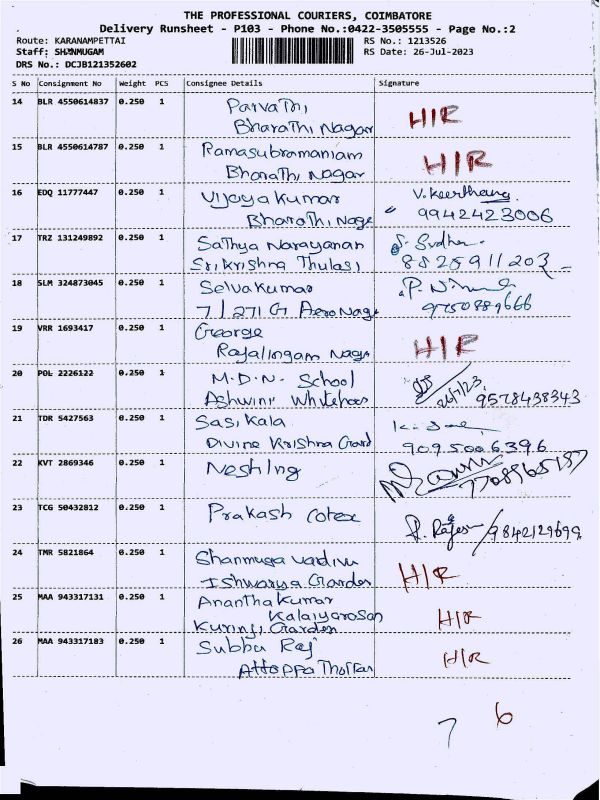 THE PROFESSIONAL COURIERS, COIMBATORE
Delivery Runsheet - P103 - Phone No.:0422-3505555 - Page No.:2
Route: KARANAMPETTAI RS No.: 1213526
Staff: SHANMUGAM RS Date: 26-Jul-2023
DRS No.: DCJB121352602
S No Consignment No Weight PCS Consignee Details Signature
14 BLR 4550614837 0.250 1 Parvathi H/R
Bharathi Nagar
15 BLR 4550614787 0.250 1 Ramasubramaniam H/R
Bharathi Nagar
16 EDQ 11777447 0.250 1 Vijayakumar V. Keerthana
Bharathi Nage 9942423006
17 TRZ 131249892 0.250 1 Sathya Narayanan S. Sudha
Sri Krishna Thulasi 8825911203
18 SLM 324873045 0.250 1 Selvakumar
7/271 G Aero Nage 9750889666
19 VRR 1693417 0.250 1 George H/R
Rajalingam Nage
20 POL 2226122 0.250 1 M.D.N. School 26/7/23
Ashwini Whitehoos 9578438343
21 TDR 5427563 0.250 1 Sasikala
Divine Krishna Gard 9095006396
22 KVT 2869346 0.250 1 Neshing 7708965187
23 TCG 50432812 0.250 1 Prakash Cotex R. Rajesh /9842129699
24 TMR 5821864 0.250 1 Shanmuga Vadivu H/R
Ishwarya Garden
25 MAA 943317131 0.250 1 Anantha Kumar H/R
Kalaiyarasan
Kurinji Garden
26 MAA 943317183 0.250 1 Subbu Raj H/R
Attoppa Thottam
7 6